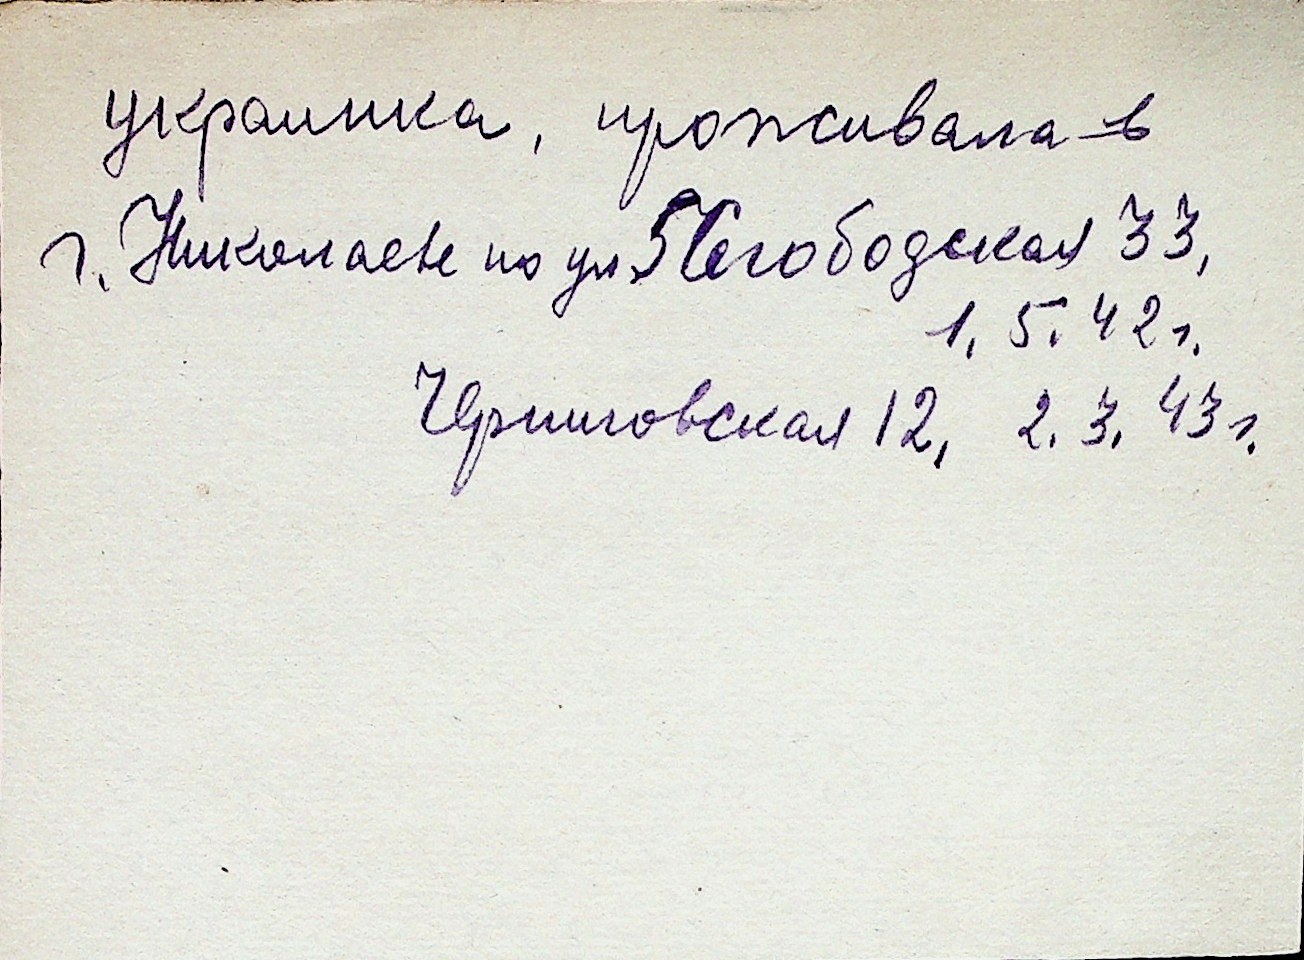 украинка, проживала в
г. Николаеве по ул. 5 Слободская 33,
1. 5. 42 г.
Черниговская 12, 2. 3. 43 г.